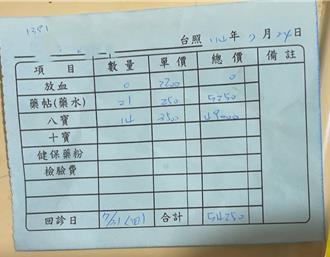 1381
台照 114年 7月 24日
項目 數量 單價 總價 備註
放血 0 2200 0
藥帖(藥水) 21 250 5250
八寶 14 3500 49000
十寶
健保藥粉
檢驗費
回診日 7/31(四) 合計 54250